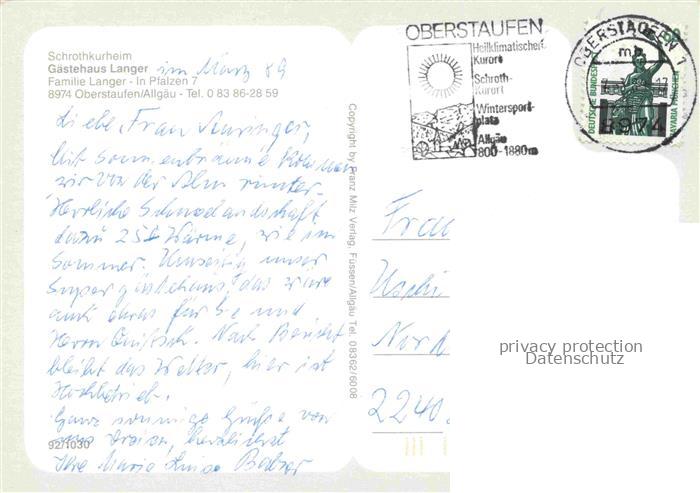 Schrothkurheim
Gästehaus Langer im März 89
Familie Langer - In Pfalzen 7
8974 Oberstaufen/Allgäu - Tel. 0 83 86-28 59
Liebe Frau
mit sonnenbräunte kommen
wir von der Alm runter.
Herrliche Schneelandschaft
dazu 25° Wärme, wie im
Sommer. unser
Supergästehaus, das wäre
auch etwas für Sie und
Herrn Nach Bericht
bleibt das Wetter, hier ist
Hochbetrieb.
Ganz sonnige Grüße von
uns dreien, herzlichst
Ihre Maria Luise
92/1030
Copyright by Franz Milz Verlag, Füssen/Allgäu Tel. 08362/6008
OBERSTAUFEN
Heilklimatischer
Kurort
Schroth-
Kurort
Wintersport-
platz
Allgäu
800-1880m
OBERSTAUFEN 1
mb
17
8974
DEUTSCHE BUNDESPOST
BAVARIA MÜNCHEN
Frau
Uschi
Nord
2240
privacy protection
Datenschutz